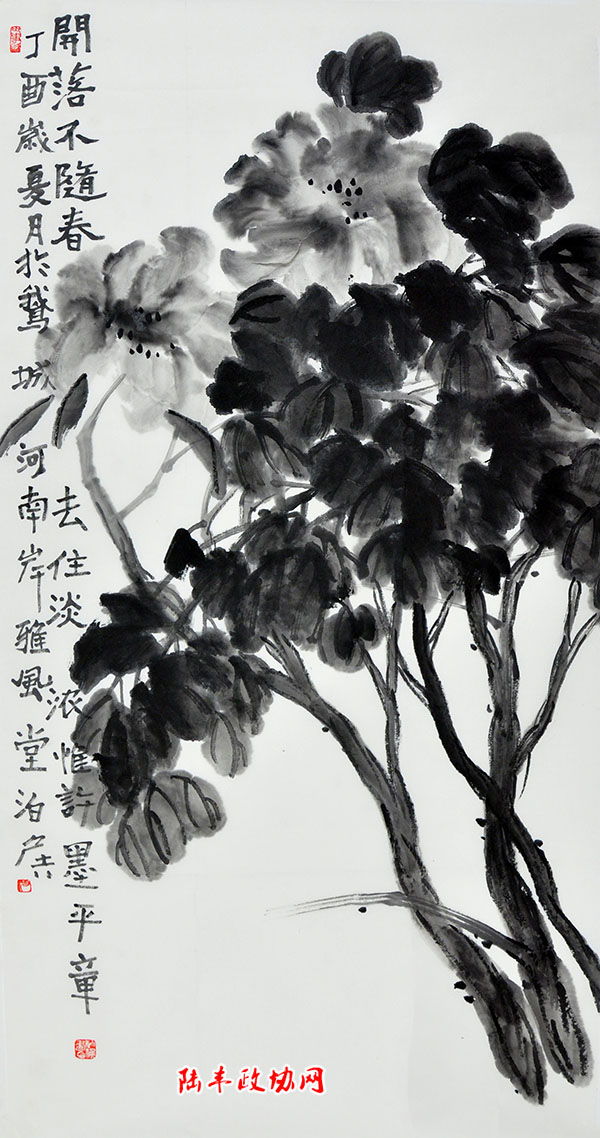 開落不隨春去住淡浓惟許墨平章
丁酉歲夏月於鵞城河南岸雅風堂泊
陆丰政协网